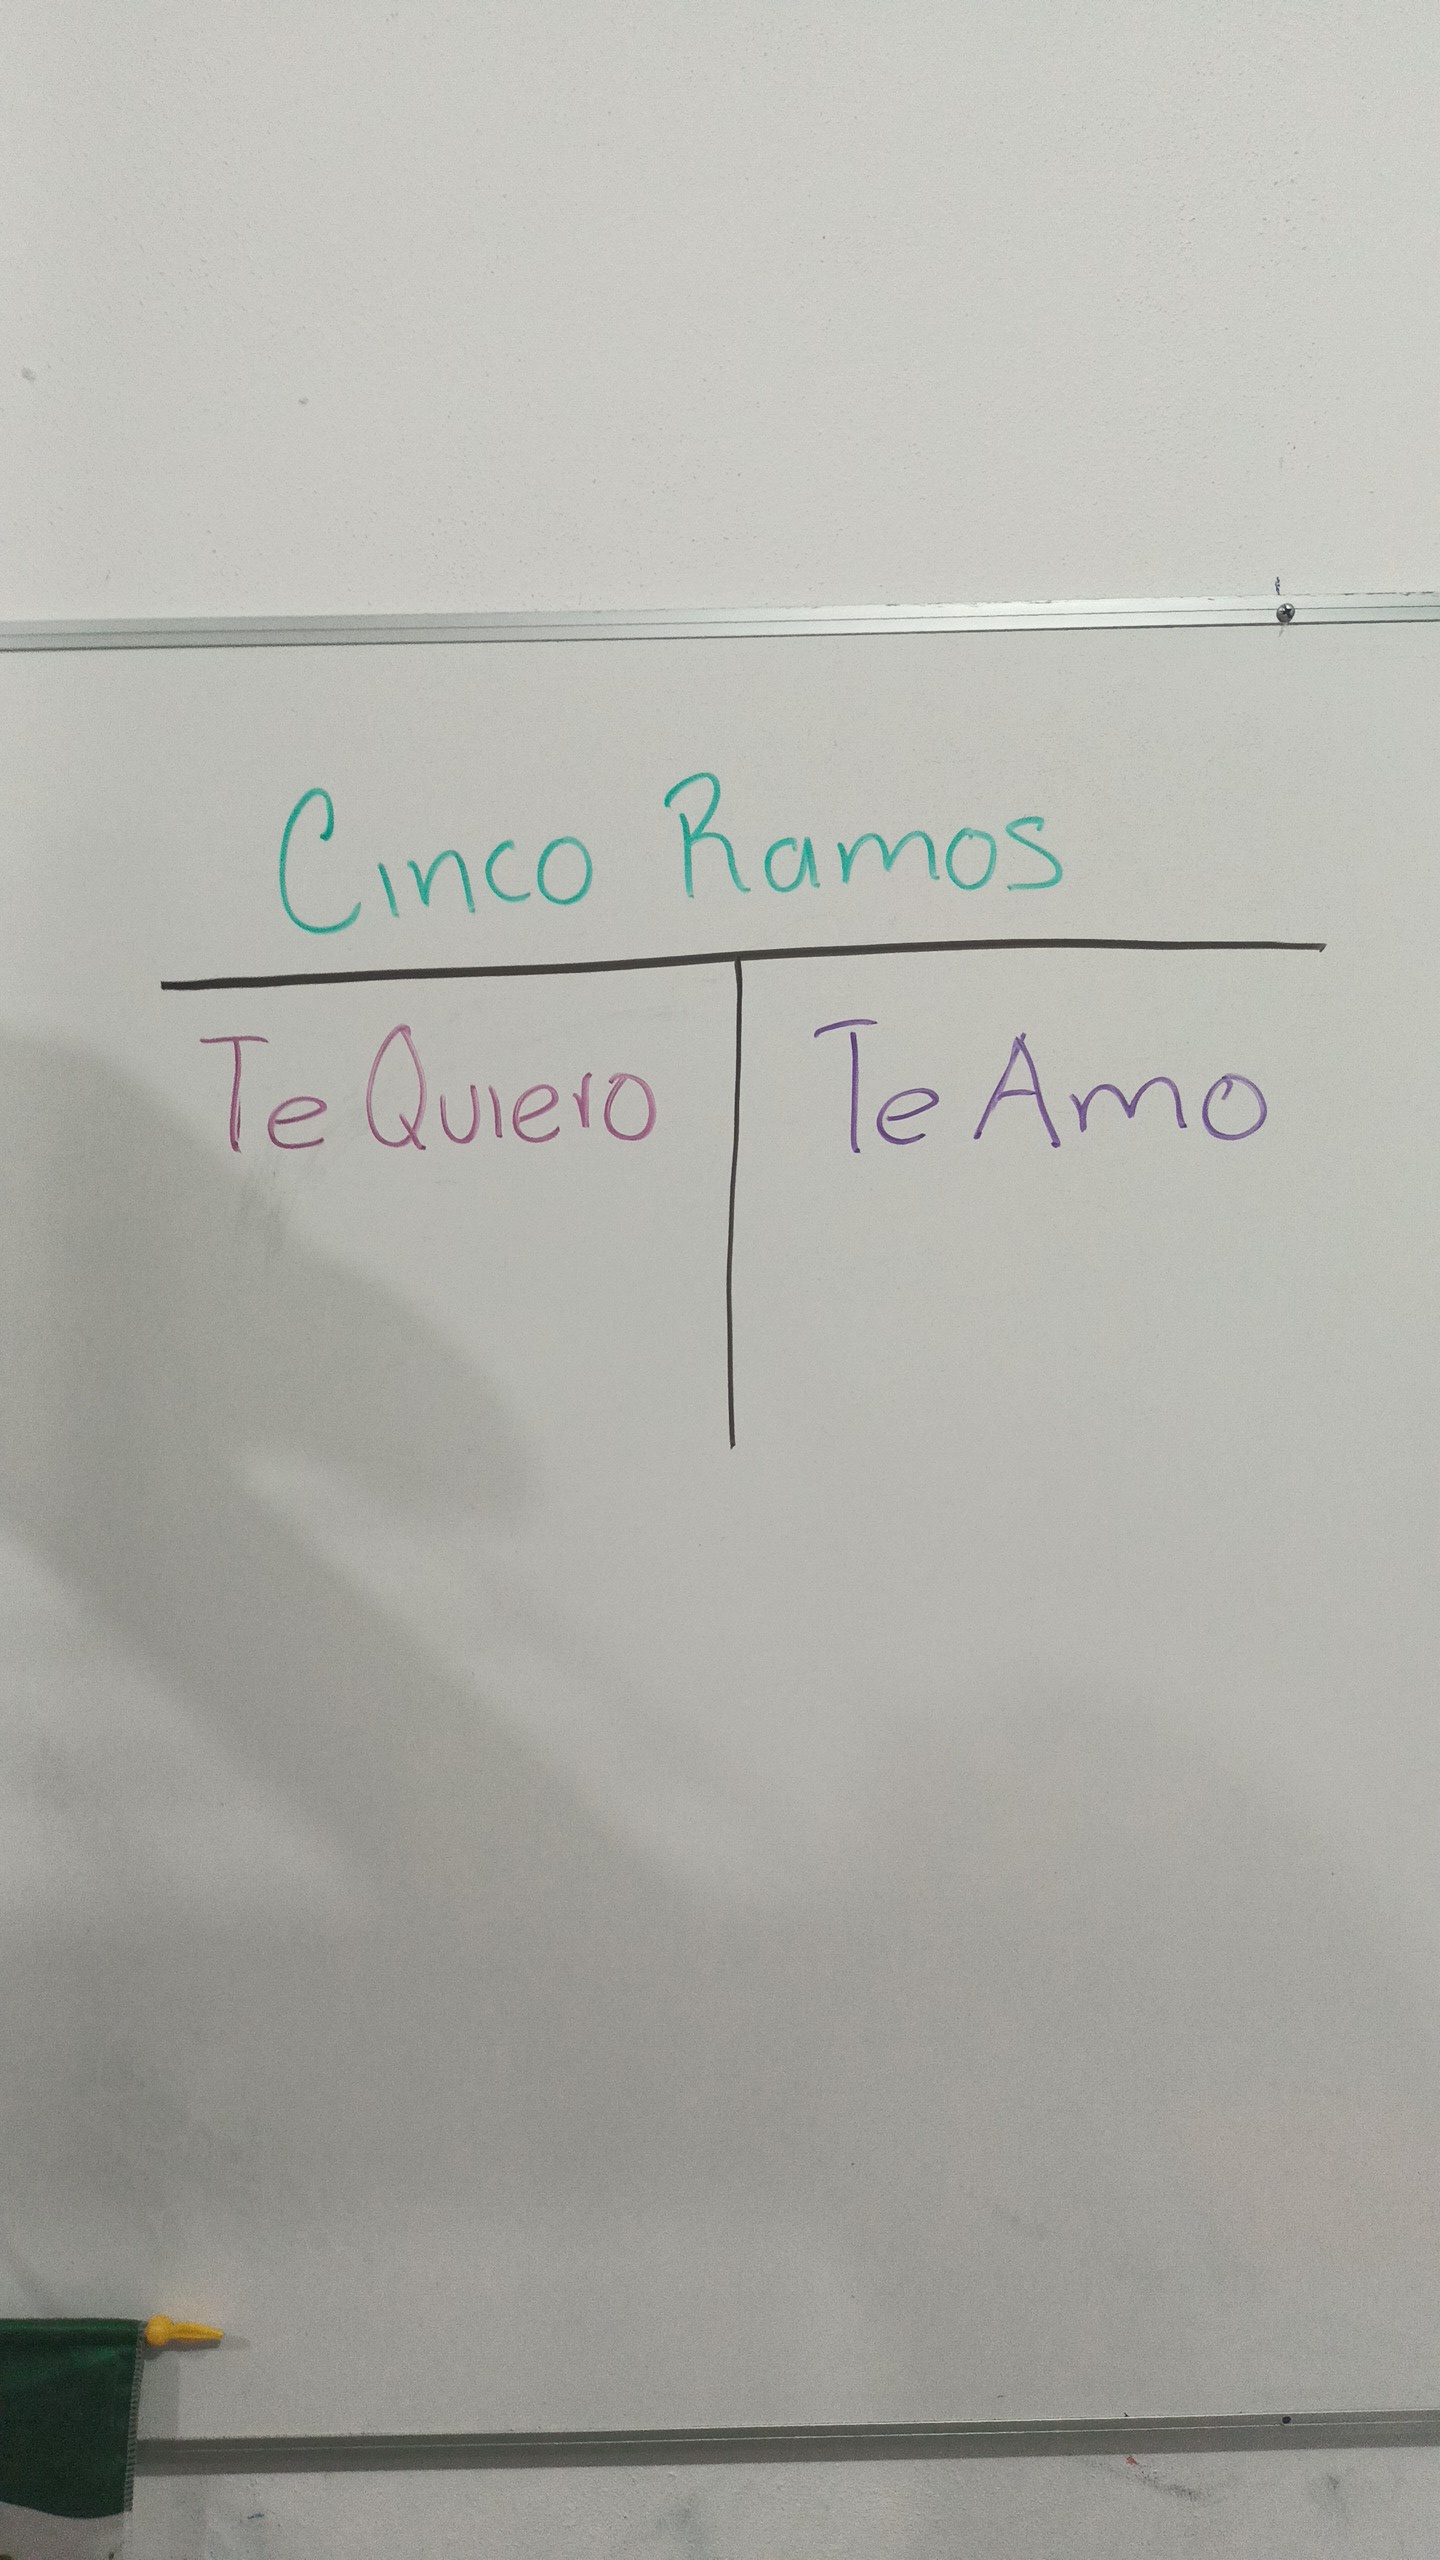 Cinco Ramos
Te Quiero
Te Amo